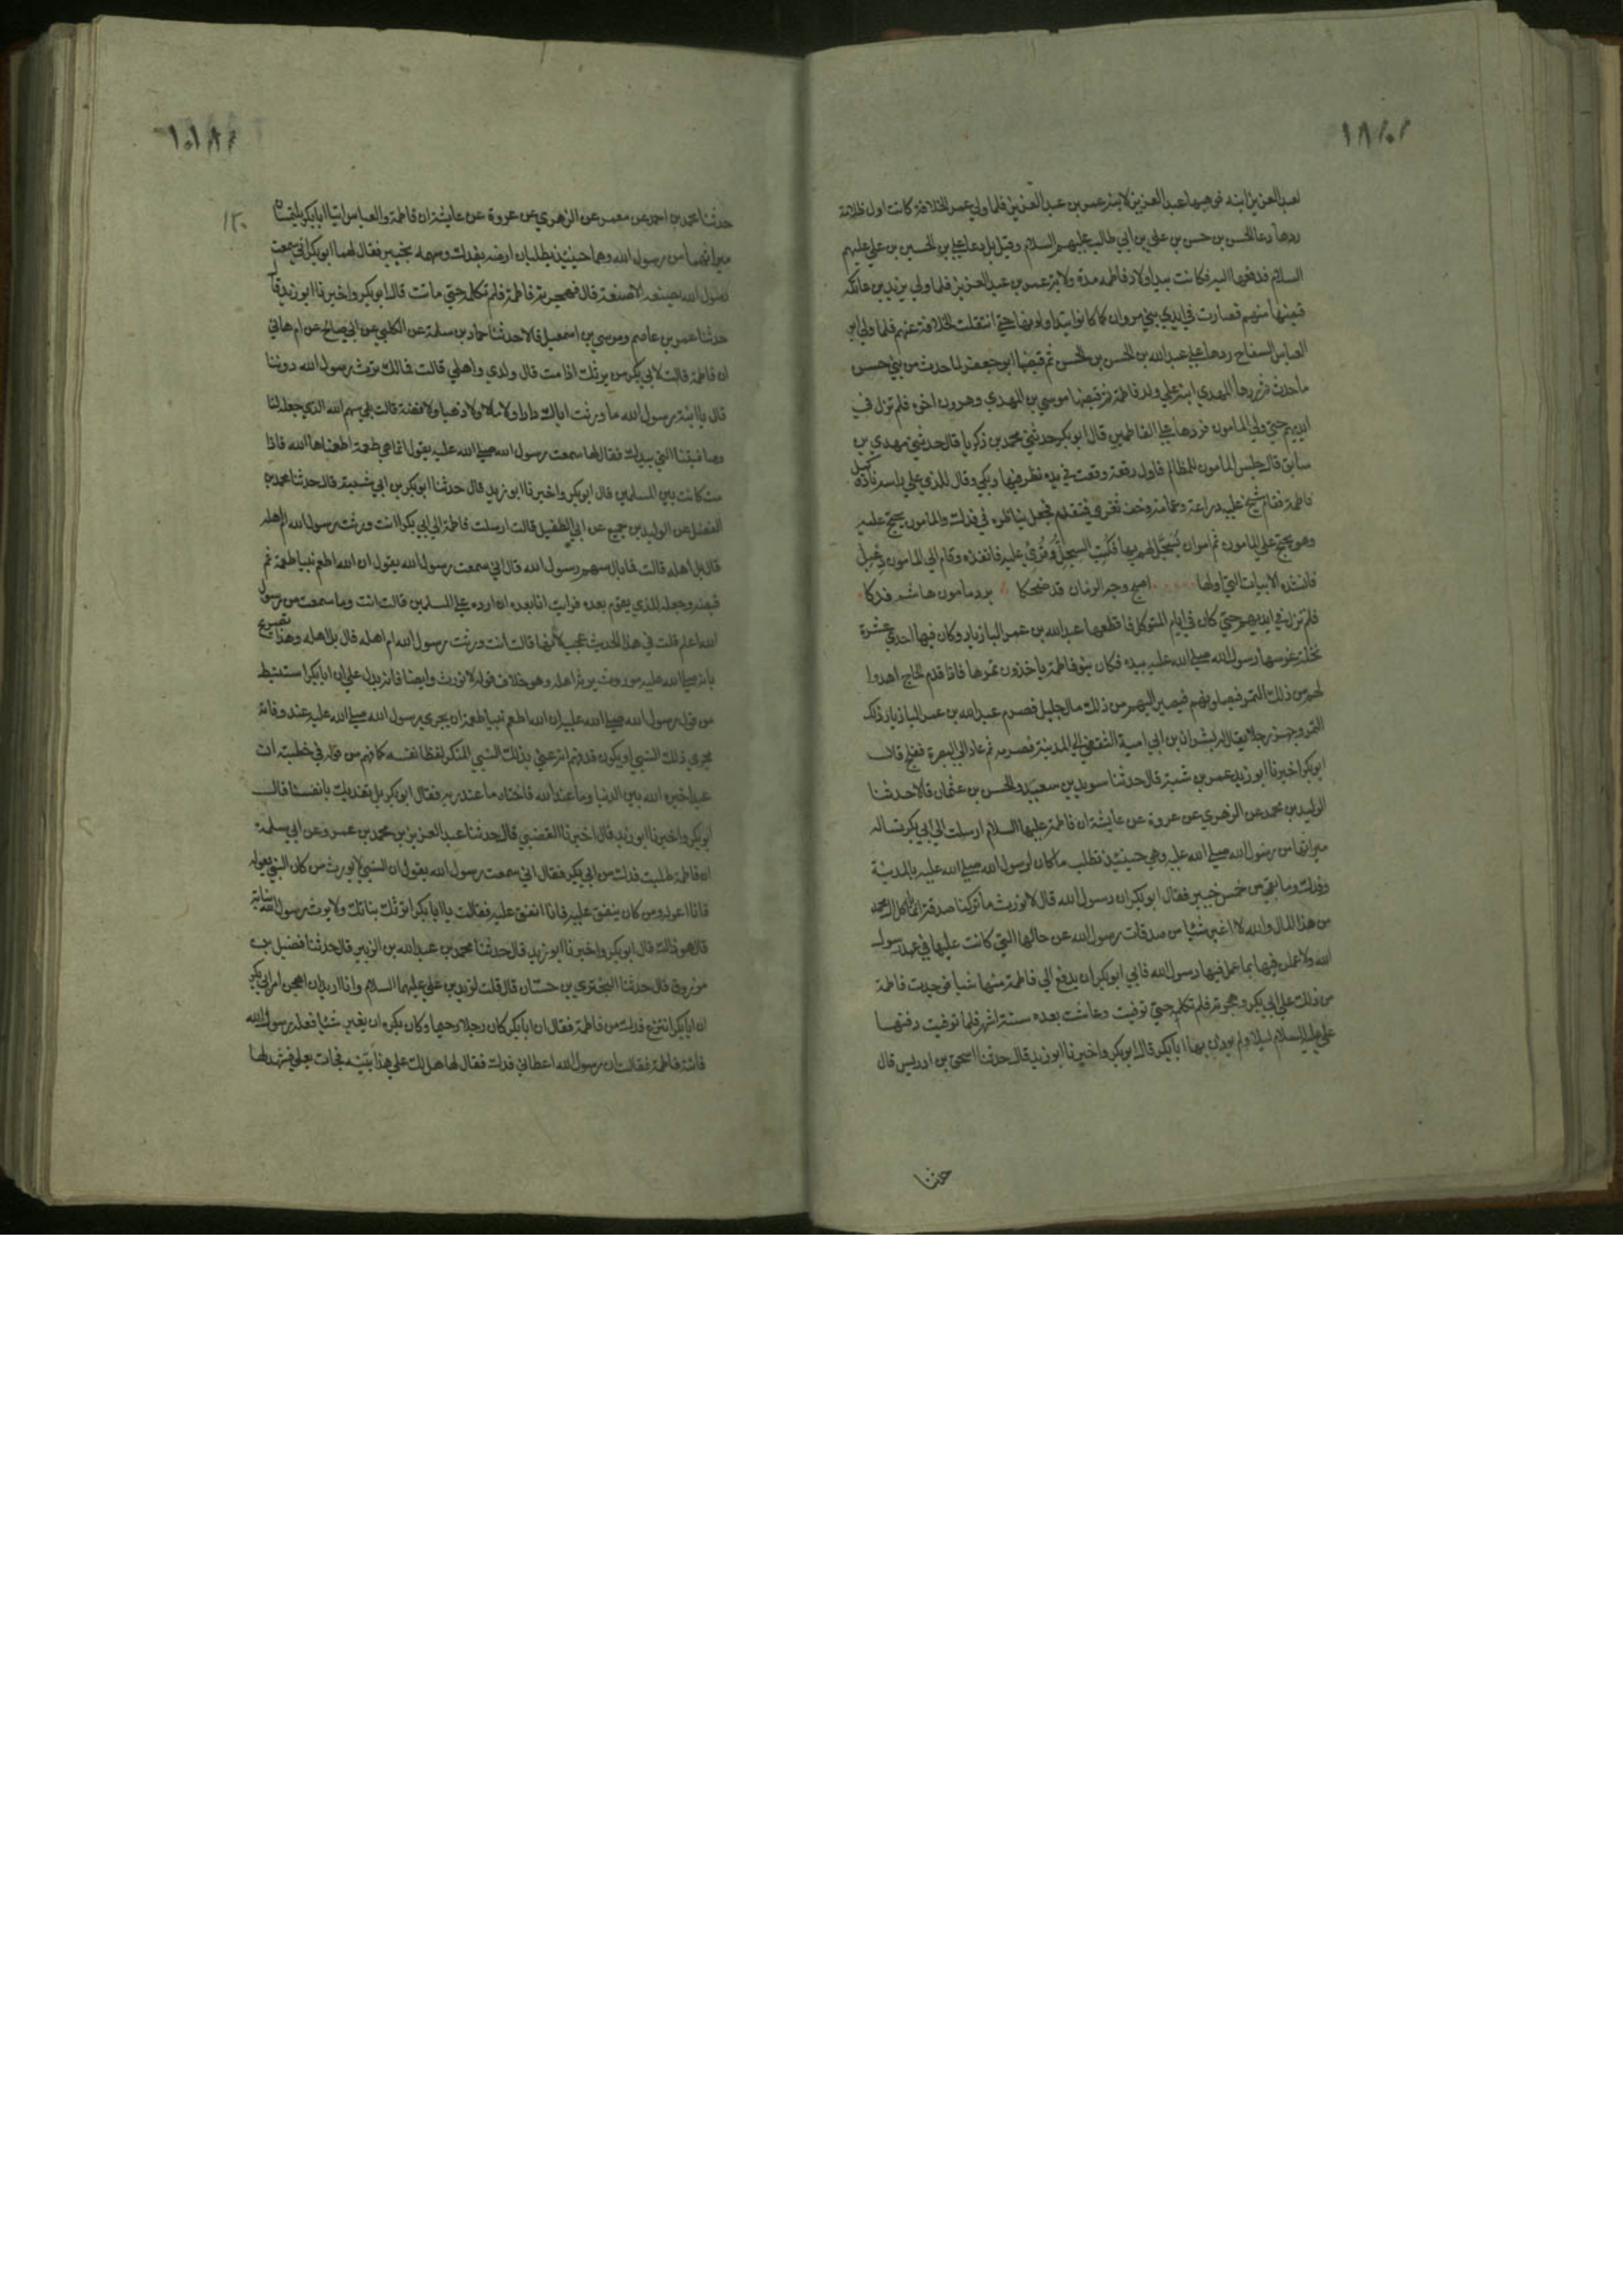 لعبد العزيز ابنه فوهبها عبد العزيز لابنه عمر بن عبد العزيز فلما ولي عمر الخلافة كانت اول ظلامة
ردها دعا الحسن بن حسن بن علي بن ابي طالب عليهم السلام وقيل بل دعا علي بن الحسين بن علي عليهم
السلام فدفعها اليه فكانت بيد اولاد فاطمه مدة ولاية عمر بن عبد العزيز فلما ولي يزيد بن عاتكه
قبضها منهم فصارت في ايدي بني مروان كما كانوا يتداولونها حتى انتقلت الخلافة عنهم فلما ولي ابو
العباس السفاح ردها علي عبد الله بن الحسن بن الحسن ثم قبضها ابو جعفر لما حدث من بني حسن
ما حدث ثم ردها المهدي ابنه علي ولد فاطمة ثم قبضها موسي بن المهدي وهرون اخوه فلم تزل في
ايديهم حتي ولي المامون فردها علي الفاطميين قال ابو بكر حدثني محمد بن زكريا قال حدثني مهدي بن
سابق قال جلس المامون للمظالم فاول رقعة وقعت في يده نظر فيها وبكي وقال للذي علي راسه ناد اين وكيل
فاطمة فقام شيخ عليه دراعة وعمامة وخف تغزي فتقدم فجعل يناظره في فدك والمامون يحتج عليه
وهو يحتج علي المامون ثم امر ان يسجل لهم بها فكتب السجل وقري عليه فانفذه وقام الي المامون دعبل
فانشده الابيات التي اولها اصبح وجه الزمان قد ضحكا برد مامون هاشم فدكا
فلم تزل في ايديهم حتي كان في ايام المتوكل فاقطعها عبد الله بن عمر البازيار وكان فيها احدي عشرة
نخلة غرسها رسول الله صلى الله عليه بيده فكان بنو فاطمة ياخذون تمرها فاذا قدم الحاج اهدوا
لهم من ذلك التمر فيصلونهم فيصير اليهم من ذلك مال جليل فصرم عبد الله بن عمر البازيار ذلك
التمر وجه رجلا يقال له بشران بن ابي امية الثقفي الي المدينة فصرمه ثم عاد الي البصرة ففلج قال
ابو بكر اخبرنا ابو زيد عمر بن شبة قال حدثنا سويد بن سعيد والحسن بن عثمان قالا حدثنا
الوليد بن محمد عن الزهري عن عروة عن عايشة ان فاطمة عليها السلام ارسلت الي ابي بكر تساله
ميراثها من رسول الله صلى الله عليه وهي حينئذ تطلب ما كان لرسول الله صلى الله عليه بالمدينة
وفدك وما بقي من خمس خيبر فقال ابو بكر ان رسول الله قال لا نورث ما تركنا صدقة انما ياكل ال محمد
من هذا المال والله لا اغير شئيا من صدقات رسول الله عن حالها التي كانت عليها في عهد رسول
الله ولاعملن فيها بما عمل فيها رسول الله فابي ابو بكر ان يدفع الي فاطمة منها شيا فوجدت فاطمة
من ذلك علي ابي بكر وهجرته فلم تكلمه حتي توفيت وعاشت بعده ستة اشهر فلما توفيت دفنها
علي عليه السلام ليلا ولم يوذن بها ابا بكر قال ابو بكر واخبرنا ابو زيد قال حدثنا اسحق بن ادريس قال
حدثنا
١٢٠
حدثنا محمد بن احمد عن معمر عن الزهري عن عروة عن عايشة ان فاطمة والعباس اتيا ابا بكر يلتمسان
ميراثهما من رسول الله وهما حينئذ يطلبان ارضه بفدك وسهمه بخيبر فقال لهما ابو بكر اني سمعت
رسول الله يصنعه الا صنعته قال فهجرته فاطمة فلم تكلمه حتي ماتت قال ابو بكر واخبرنا ابو زيد قال
حدثنا عمر بن عاصم وموسي بن اسمعيل قالا حدثنا حماد بن سلمة عن الكلبي عن ابي صالح عن ام هاني
ان فاطمة قالت لابي بكر من يرثك اذا مت قال ولدي واهلي قالت فمالك ترث رسول الله دوننا
قال يا ابنة رسول الله ما ورث اباك دارا ولا مالا ولا ذهبا ولا فضة قالت بلي سهم الله الذي جعله لنا
وصافيتنا التي بيدك فقال لها سمعت رسول الله صلى الله عليه يقول انما هي طعمة اطعمناها الله فاذا
مت كانت بين المسلمين قال ابو بكر واخبرنا ابو زيد قال حدثنا ابو بكر بن ابي شيبة قال حدثنا محمد بن
الفضل عن الوليد بن جميع عن ابي الطفيل قالت ارسلت فاطمة الي ابي بكر انت ورثت رسول الله ام اهله
قال بل اهله قالت فما بال سهم رسول الله قال اني سمعت رسول الله يقول ان الله اطعم نبيا طعمة ثم
قبضه وجعله للذي يقوم بعده فرايت انا بعده ان ارده علي المسلمين قالت انت وما سمعت من رسول
الله اعلم قلت في هذا الحديث عجب لانها قالت انت ورثت رسول الله ام اهله قال بل اهله وهذا تصريح
بانه صلى الله عليه موروث يرثه اهله وهو خلاف قوله لا نورث وايضا فانه يدل علي ان ابا بكر استنبط
من قول رسول الله صلى الله عليه ان الله اطعم نبيا طعمة ان يجري رسول الله صلى الله عليه عند وفاته
مجري ذلك النبي او يكون قد فهم انه عني بذلك النبي المنكر لفظا نفسه كما فهم من قوله في خطبته ان
عبدا خيره الله بين الدنيا وما عند الله فاختار ما عند ربه فقال ابو بكر بل نفديك بانفسنا قال
ابو بكر واخبرنا ابو زيد قال اخبرنا القضبي قال حدثنا عبد العزيز بن محمد بن عمرو عن ابي سلمة
ان فاطمة طلبت فدك من ابي بكر فقال اني سمعت رسول الله يقول ان النبي لا يورث من كان النبي يعوله
فانا اعوله ومن كان ينفق عليه فانا انفق عليه فقالت يا ابا بكر اترثك بناتك ولا يرث رسول الله بناته
قال هو ذاك قال ابو بكر واخبرنا ابو زيد قال حدثنا محمد بن عبد الله بن الزبير قال حدثنا فضيل بن
مرزوق قال حدثنا البختري بن حسان قال قلت لزيد بن علي عليهما السلام وانا اريد ان اهجن امر ابي بكر
ان ابا بكر انتزع فدك من فاطمة فقال ان ابا بكر كان رجلا رحيما وكان يكره ان يغير شئيا فعله رسول الله
فاتته فاطمة فقالت ان رسول الله اعطاني فدك فقال لها هل لك علي هذا بينه فجات بعلي فشهد لها